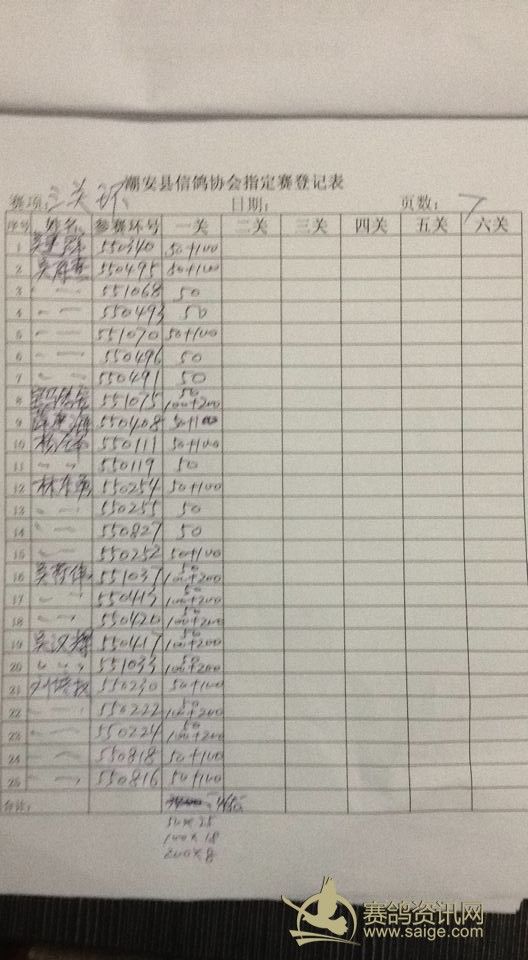 潮安县信鸽协会指定赛登记表
赛项: 三关环 日期: 页数: 7
序号 姓名 参赛环号 一关 二关 三关 四关 五关 六关
1 550340 50+100
2 550495 50+100
3 〃 551068 50
4 〃 550493 50
5 〃 551070 50+100
6 〃 550496 50
7 〃 550491 50
8 551075 50 100+200
9 550408 50+100
10 550111 50+100
11 〃 〃 550119 50
12 550254 50+100
13 〃 550255 50
14 〃 550827 50
15 〃 550252 50+100
16 551037 50 100+200
17 〃 550413 50 100+200
18 〃 550420 50 100+200
19 550417 50 100+200
20 〃 〃 〃 551033 50 100+200
21 550230 50+100
22 〃 550222 50 100+200
23 〃 550224 50 100+200
24 〃 550818 50+100
25 〃 550816 50+100
合计:
50×25
100×18
200×8
赛鸽资讯网
www.saige.com